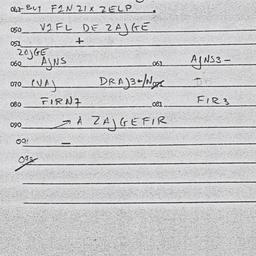 047 BUT FIN ZIX ZELP
050 VIFL DE ZAJGE
051 +
ZOJGE
060 AJNS 061 AJNS3-
070 PVAJ DRAJ3+/N
080 FIRN7 081 FIR3
090 → A ZAJGEFIR
091 —
092